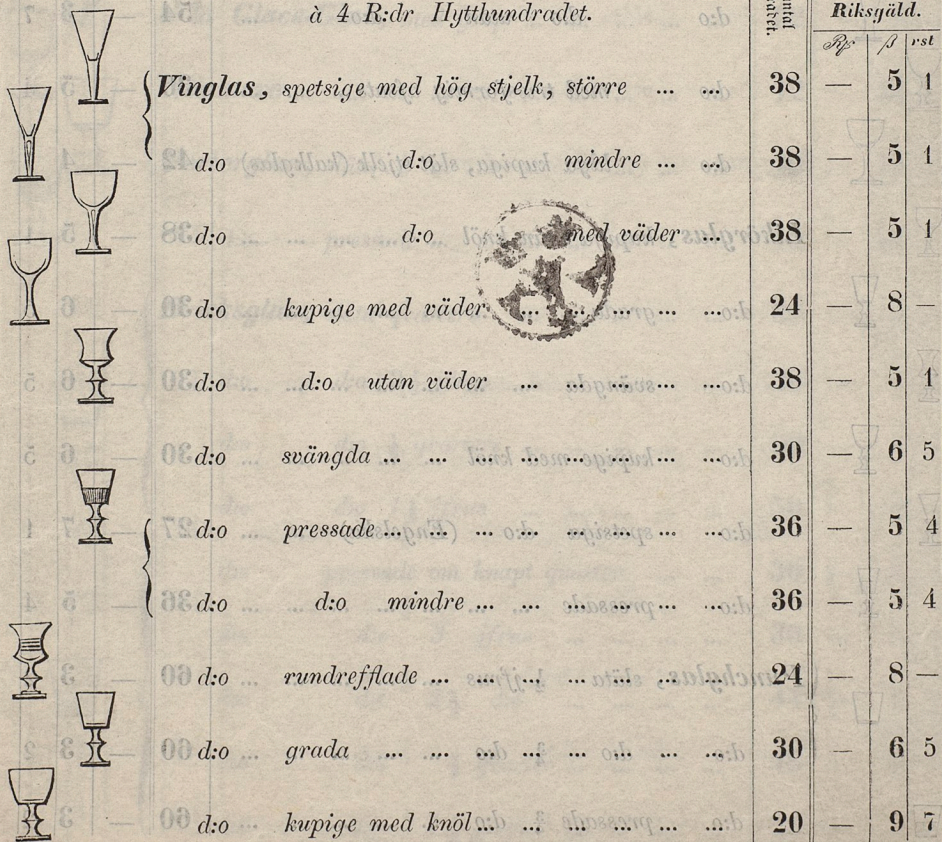 à 4 R:dr Hytthundradet.
Riksgäld.
ß rst
Vinglas, spetsige med hög stjelk, större ... ... 38 — 5 1
d:o d:o mindre ... ... 38 — 5 1
d:o d:o med väder ... 38 — 5 1
d:o kupige med väder ... ... ... ... ... 24 — 8 —
d:o d:o utan väder ... ... ... ... ... 38 — 5 1
d:o svängda ... ... ... ... ... ... ... ... 30 — 6 5
d:o pressade ... ... ... ... ... ... ... ... 36 — 5 4
d:o d:o mindre ... ... ... ... ... ... 36 — 5 4
d:o rundrefflade ... ... ... ... ... ... ... 24 — 8 —
d:o grada ... ... ... ... ... ... ... ... 30 — 6 5
d:o kupige med knöl ... ... ... ... ... ... 20 — 9 7